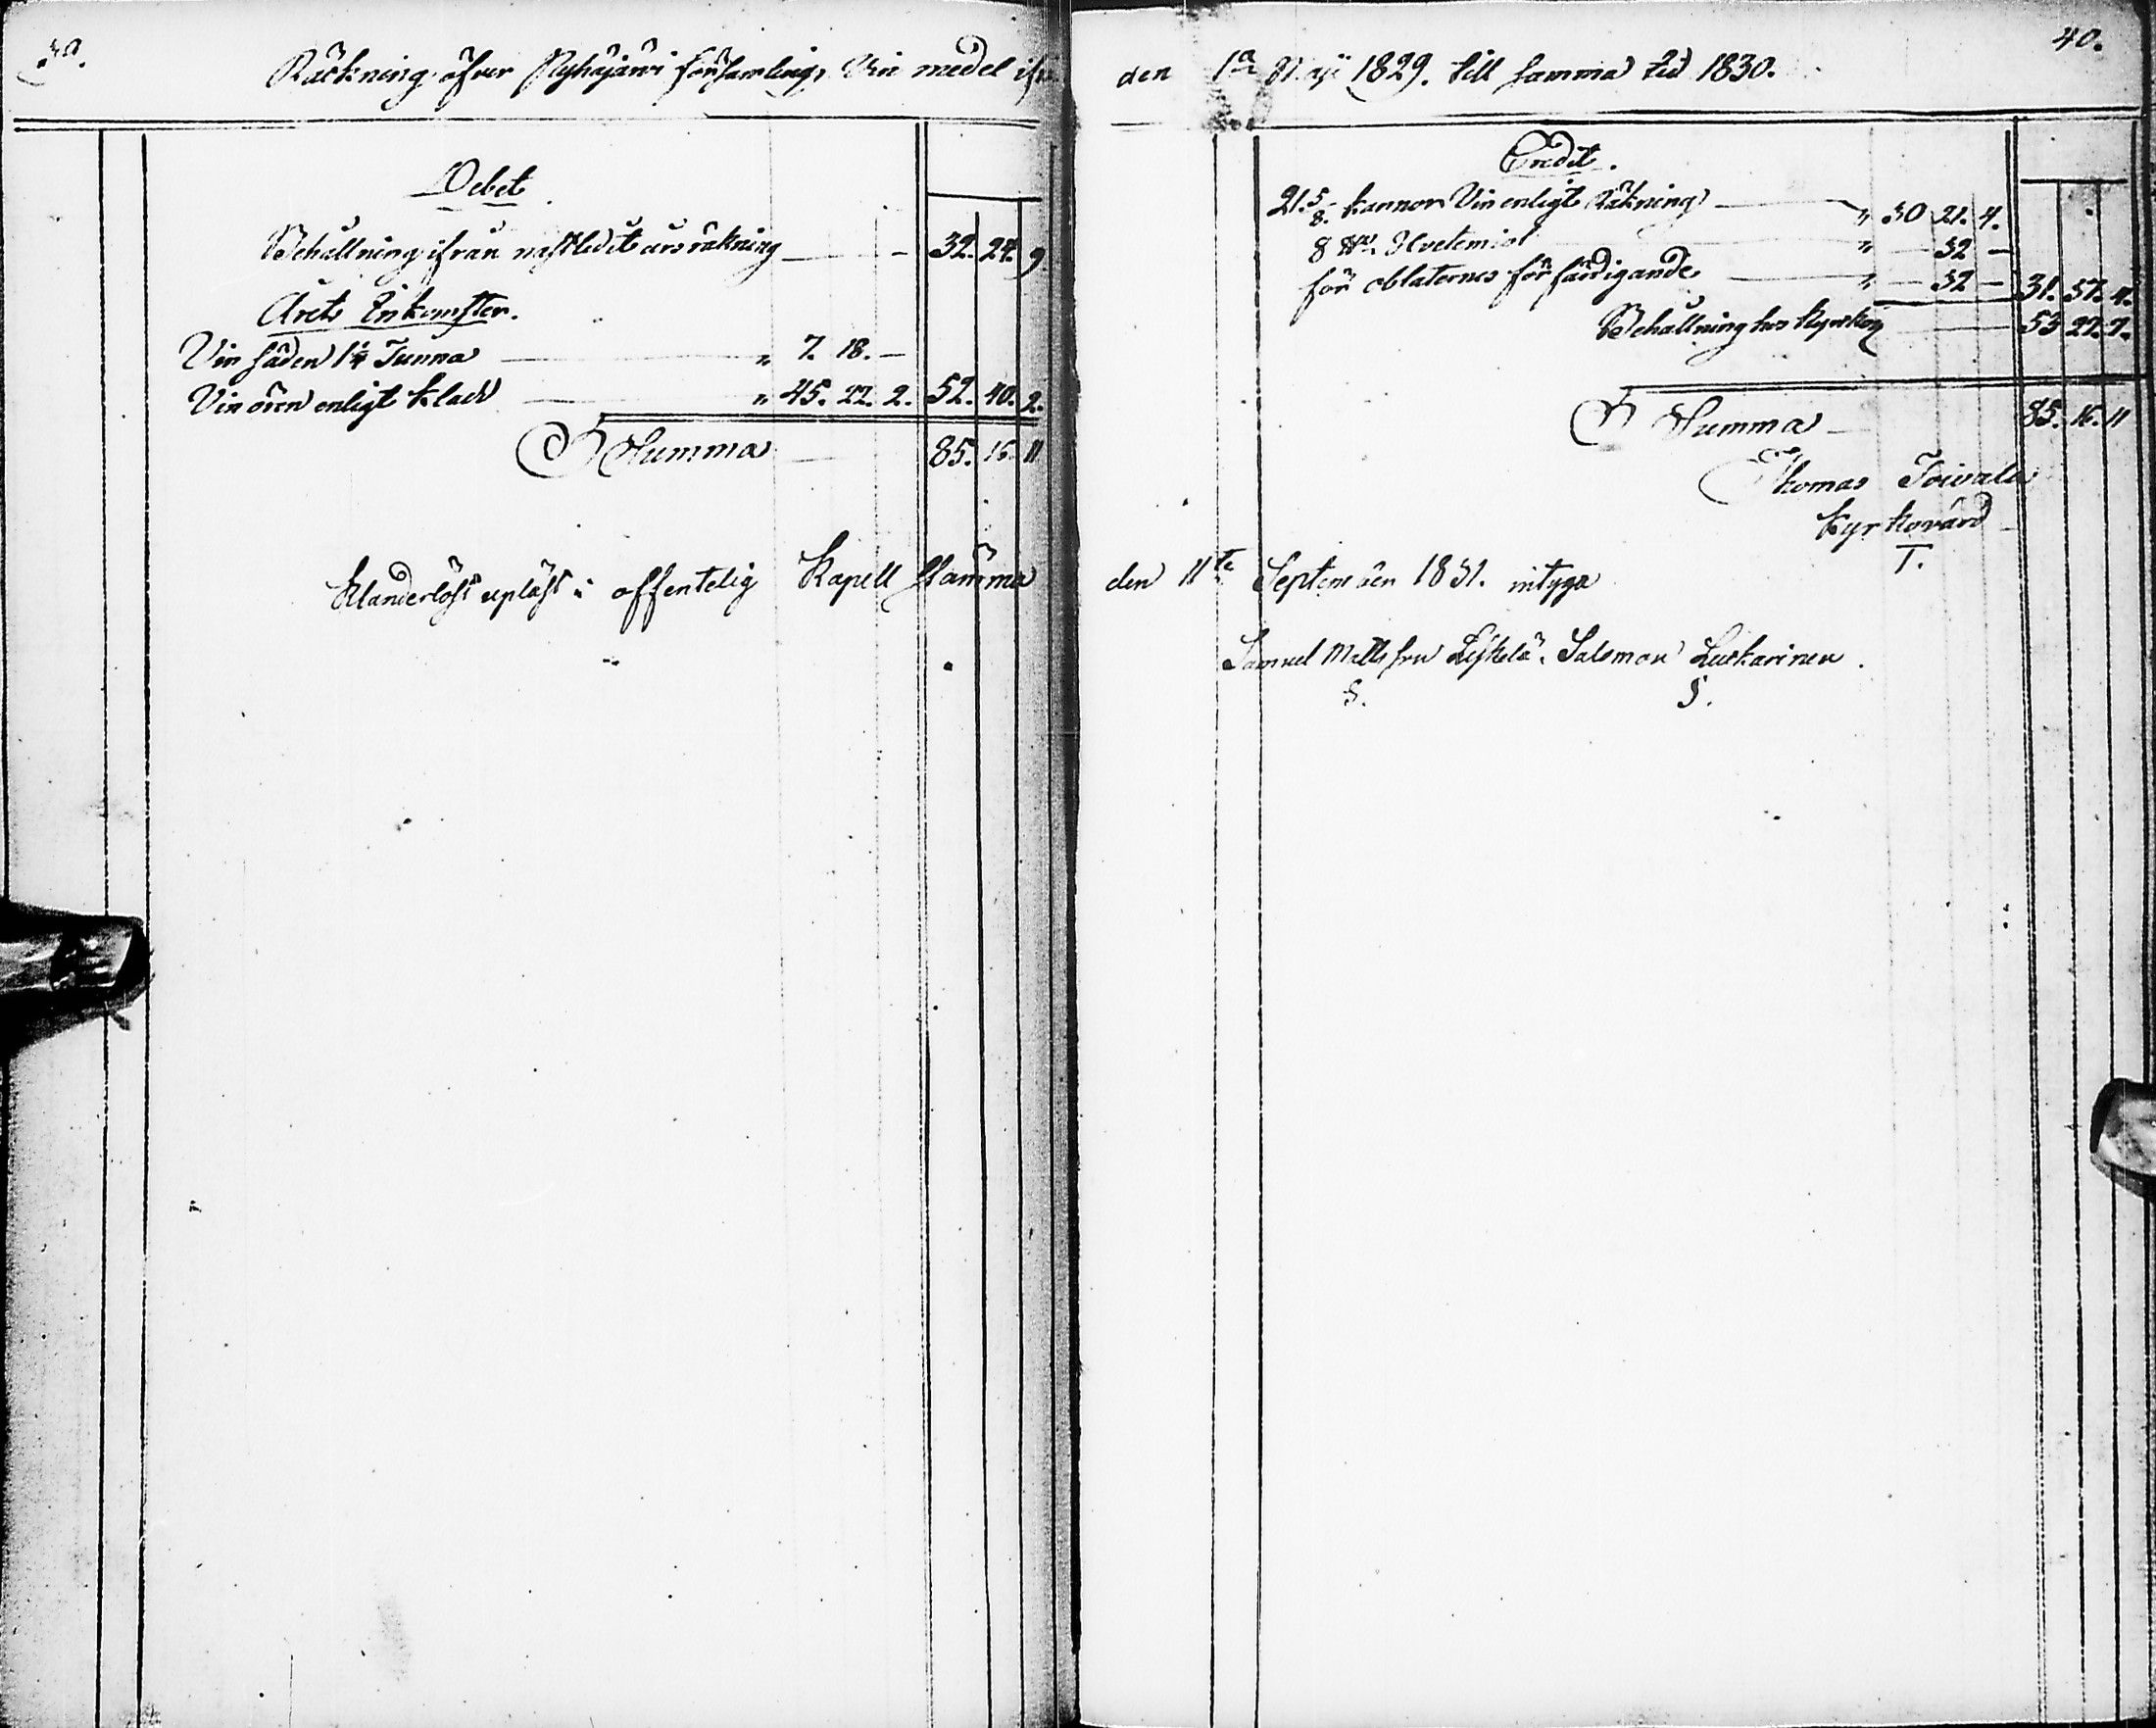 40.
Räckning öfver Pyhäjärvi församlings Vin medel ifrån den 1a Maji 1829. till samma tid 1830.
Debet
Behållning ifrån nästledit års räkning — 32. 24. 9
Årets Inkomster.
Vin säden 1 1/4 Tunna — " 7. 18. —
Vin ören enligt Kladd — " 45. 22. 2. 52. 40. 2.
Summa — 85. 16. 11
Klanderlöst upläst i offentelig Kapell Stämma
Credit.
21. 5/8. kannor Vin enligt Räkning — " 30 21. 4.
8 Hvetemiöl " — 32 —
för oblaternes förfärdigande — " — 32 — 31. 37. 4.
Behållning hos Kyrkan — 53 27. 7.
Summa — 85. 16. 11
Thomas Toivala
Kyrkovärd
T.
den 11te September 1831. intyga
Samuel Matts son Salomon Leskarinen.
S. S.